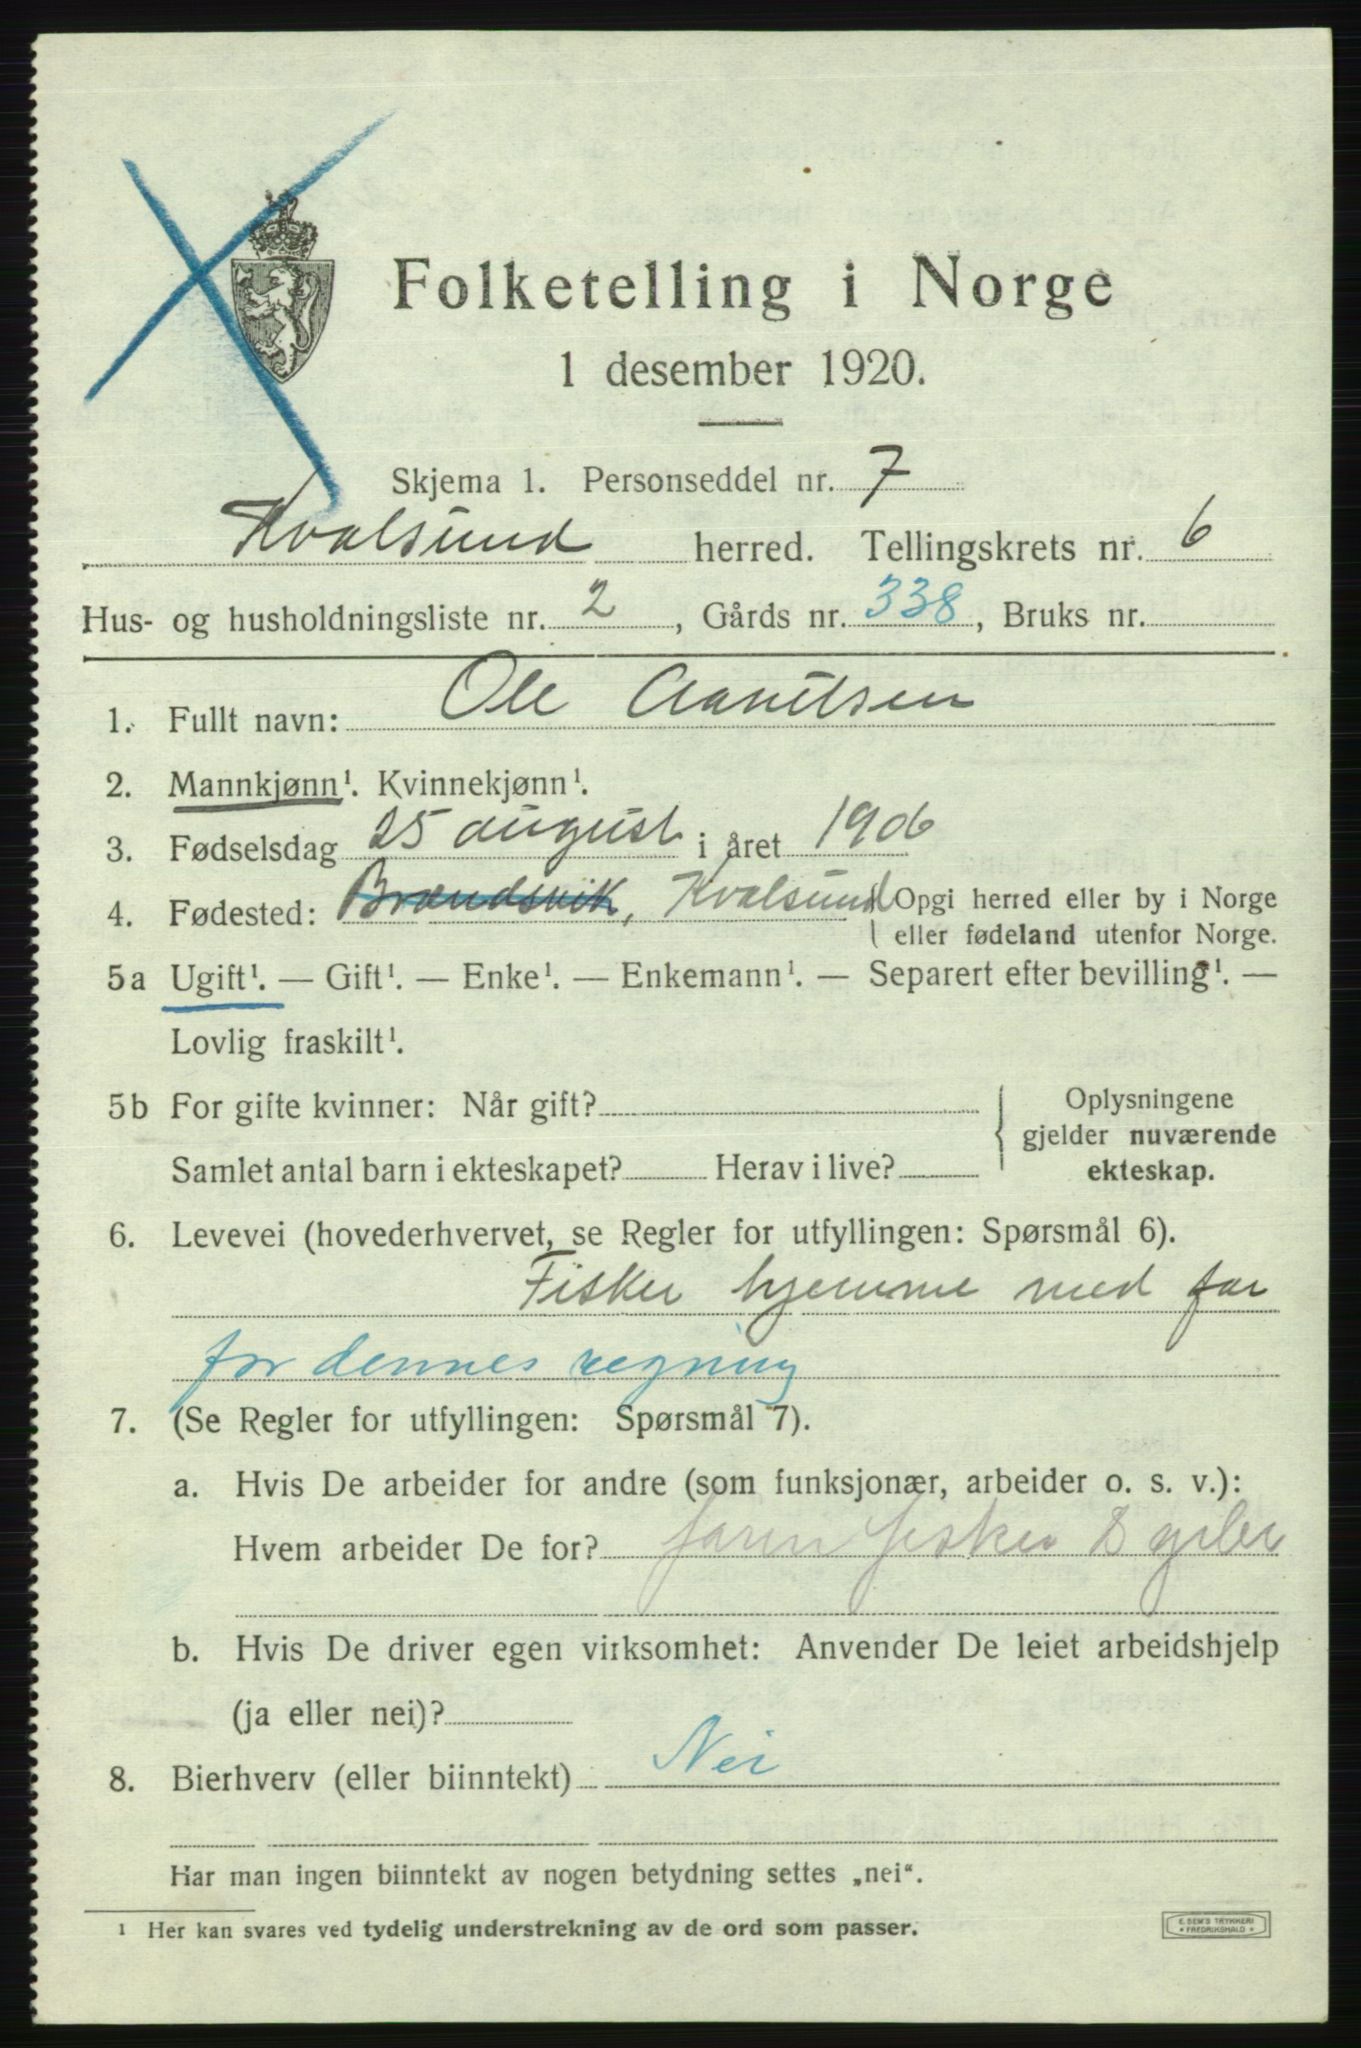 Folketelling i Norge
1 desember 1920.
Skjema 1. Personseddel nr. 7
Kvalsund herred. Tellingskrets nr. 6
Hus- og husholdningsliste nr. 2, Gårds nr. 338, Bruks nr.
1. Fullt navn: Ole
2. Mannkjønn¹. Kvinnekjønn¹.
3. Fødselsdag 25 august i året 1906
4. Fødested: Brændsvik, Kvalsund { Opgi herred eller by i Norge
eller fødeland utenfor Norge.
5a Ugift¹. — Gift¹. — Enke¹. — Enkemann¹. — Separert efter bevilling¹. —
Lovlig fraskilt¹.
5b For gifte kvinner: Når gift? { Oplysningene
gjelder nuværende
Samlet antal barn i ekteskapet? Herav i live? ekteskap.
6. Levevei (hovederhvervet, se Regler for utfyllingen: Spørsmål 6).
Fisker hjemme med far
for dennes regning
7. (Se Regler for utfyllingen: Spørsmål 7).
a. Hvis De arbeider for andre (som funksjonær, arbeider o. s. v.):
Hvem arbeider De for? faren fisker
b. Hvis De driver egen virksomhet: Anvender De leiet arbeidshjelp
(ja eller nei)?
8. Bierhverv (eller biinntekt) Nei
Har man ingen biinntekt av nogen betydning settes „nei“.
¹ Her kan svares ved tydelig understrekning av de ord som passer.
E. SEM'S TRYKKERI
* FREDRIKSHALD *